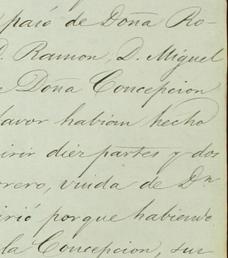 paró de Doña Ro-
D. Ramon, D. Miguel
Doña Concepcion
favor habian hecho
irir diez partes y dos
rero, viuda de Dn
irió porque habiendo
la Concepcion, sus